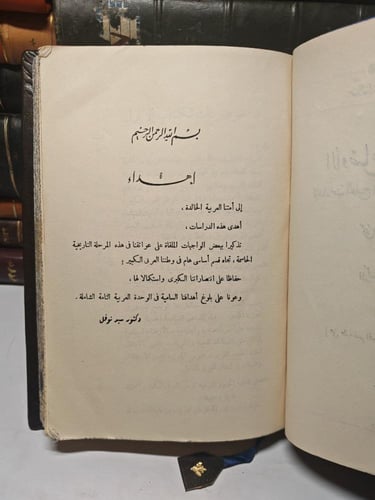 بسم الله الرحمن الرحيم
إهداء
إلى أمتنا العربية الخالدة ،
أهدى هذه الدراسات ،
تذكيرا ببعض الواجبات الملقاة على عواتقنا فى هذه المرحلة التاريخية
الحاسمة ، تجاه قسم أساسى هام فى وطننا العربى الكبير :
حفاظا على انتصاراتنا الكبرى واستكمالا لها ،
وعونا على بلوغ أهدافنا السامية فى الوحدة العربية التامة الشاملة .
دكتور سيد نوفل